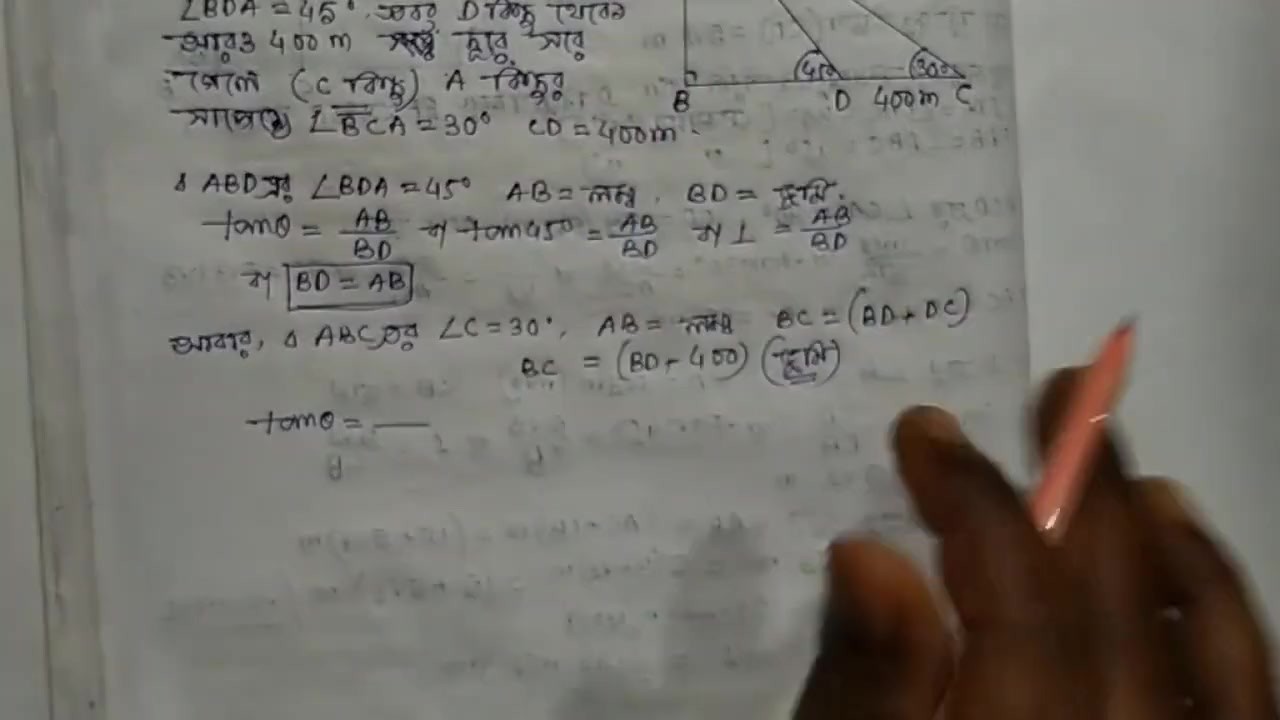 ∠BDA = 45°. এবং D বিন্দু থেকে
আরও 400 m দূরে সরে
গেলে (C বিন্দু) A বিন্দুর
সাপেক্ষে ∠BCA = 30° CD = 400m.
45° 30°
B D 400m C
Δ ABD এর ∠BDA = 45° AB = লম্ব, BD = ভূমি.
tanθ = AB/BD বা tan45° = AB/BD বা 1 = AB/BD
বা BD = AB
আবার, Δ ABC এর ∠C = 30°, AB = লম্ব BC = (BD + DC)
BC = (BD + 400) (ভূমি)
tanθ =